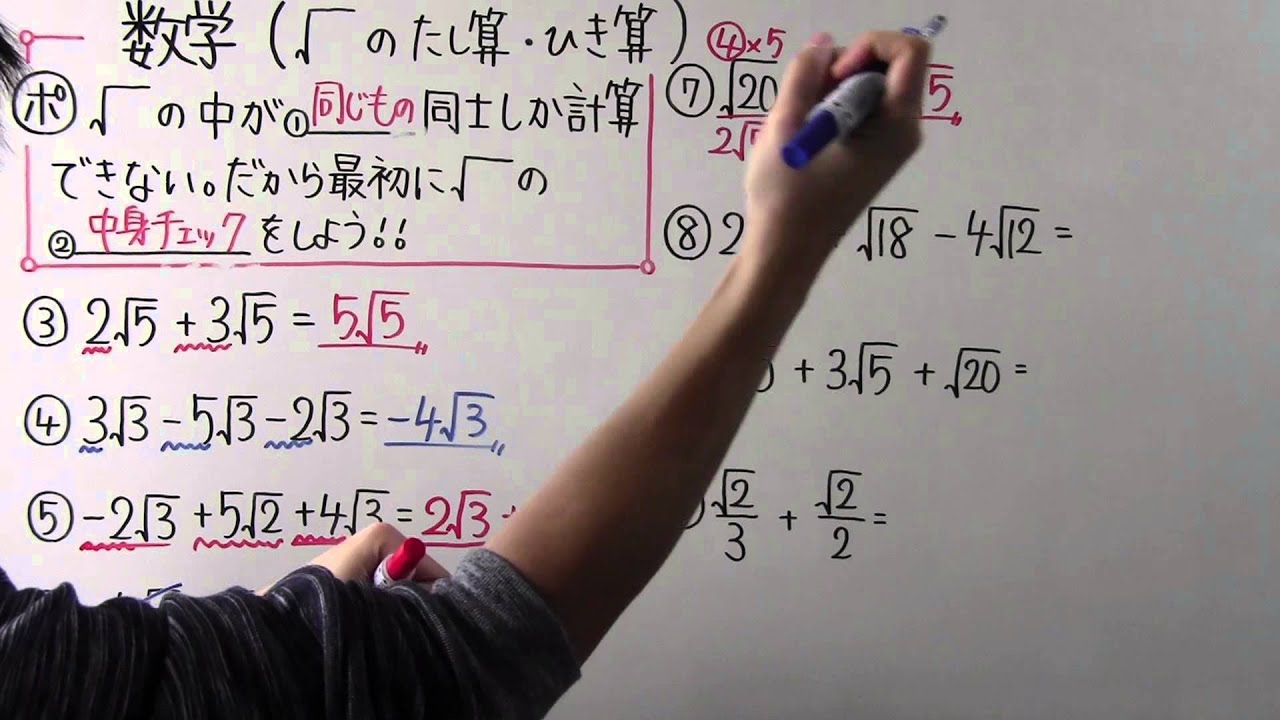 数学 (√ のたし算・ひき算)
ポ √ の中が①同じもの同士しか計算
できない。だから最初に√ の
②中身チェックをしよう!!
③ 2√5 + 3√5 = 5√5
④ 3√3 - 5√3 - 2√3 = -4√3
⑤ -2√3 + 5√2 + 4√3 = 2√3 +
④×5
⑦ √20 √5
2√5
⑧ 2 √18 - 4√12 =
+ 3√5 + √20 =
√2/3 + √2/2 =